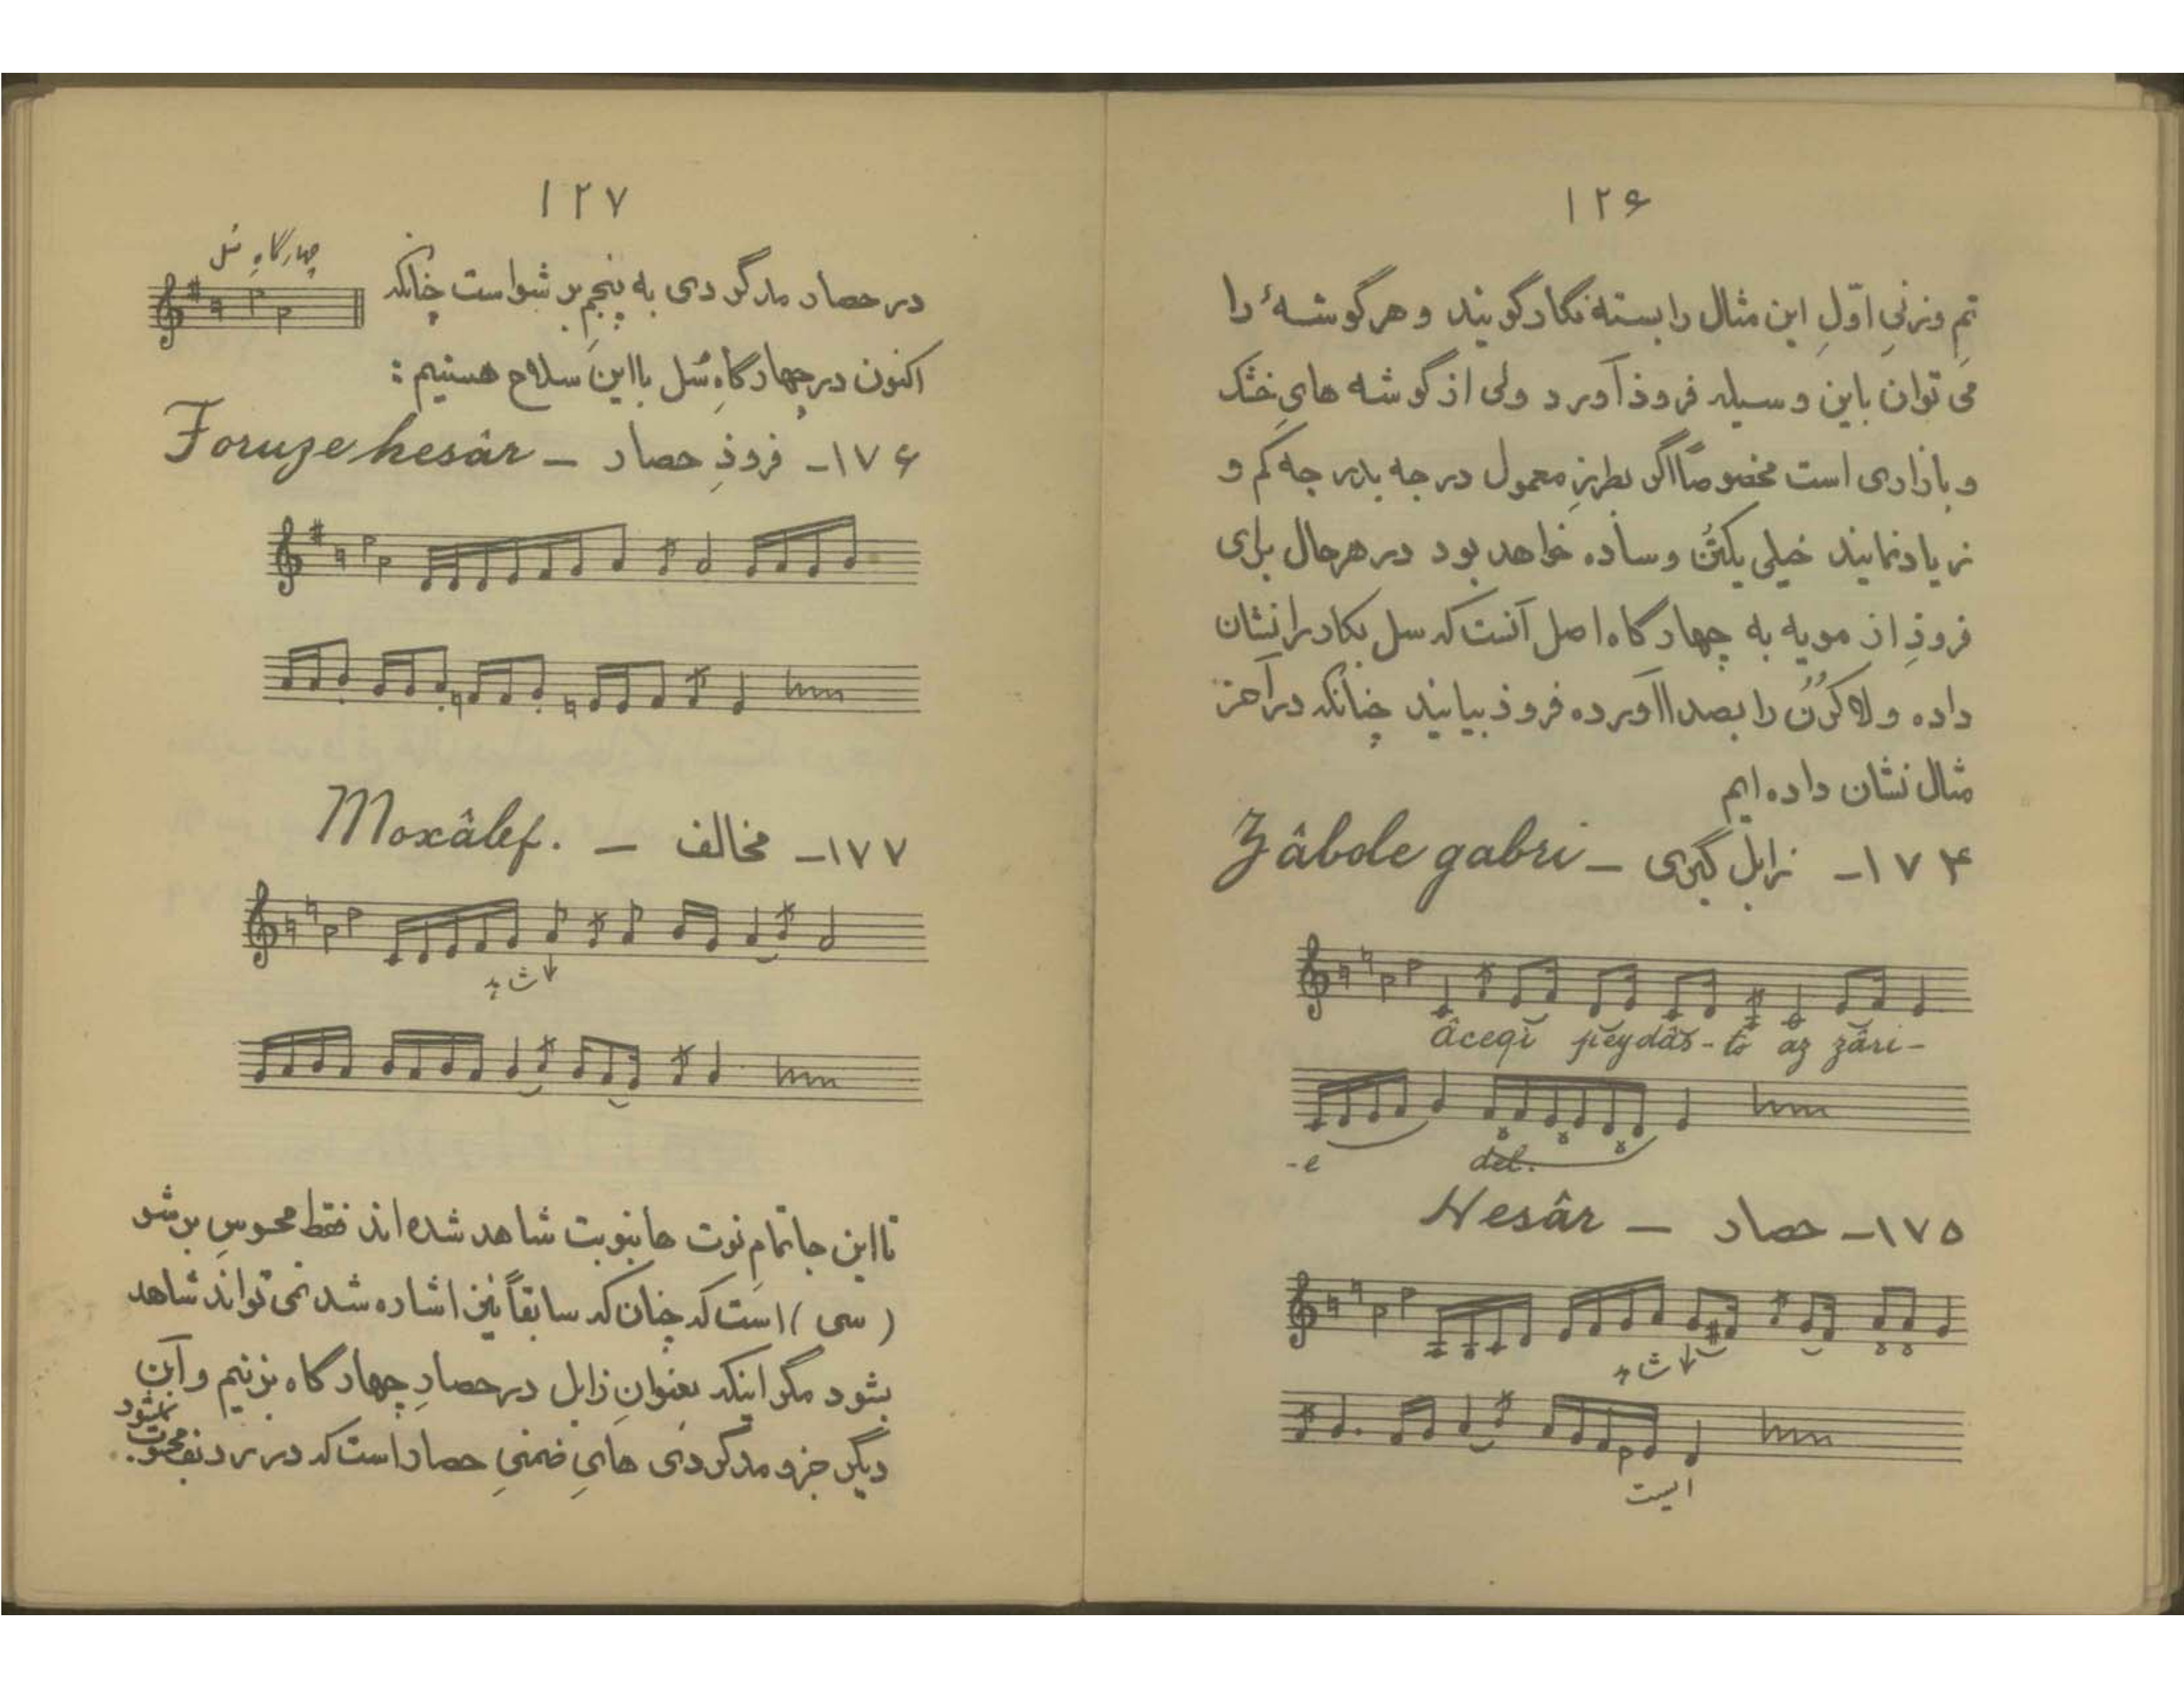 ۱۲۶
تم وزنیِ اوّلِ این مثال را بسته نگار گویند و هر گوشهٔ را
می توان باین وسیله فرود آورد ولی از گوشه هایِ خشک
و بازاری است مخصوصاً اگر بطرزِ معمول درجه بدرجه کم و
زیاد نمایند خیلی یکنُن و ساده خواهد بود در هر حال برای
فرودِ از مویه به چهارگاه اصل آنست که سل بکار را نشان
داده و لا کُرُن را بصدا آورده فرود بیایند چنانکه در آخر
مثال نشان داده ایم
۱۷۴- زابل گبری – Zâbole gabri
âceqi peydâs-to az zâri-
-e del.
۱۷۵- حصار – Hesâr
ایست
۱۲۷
در حصار مدگردی به پنجمِ بر شو است چنانکه
چهارگاهِ سُل
اکنون در چهارگاهِ سُل با این سلاح هستیم :
۱۷۶- فرودِ حصار – Foruze hesâr
۱۷۷- مخالف – Moxâlef.
تا این جا تمامِ نوت ها بنوبت شاهد شده اند فقط محسوسِ بر شو
( سی ) است که چنان که سابقاً نیز اشاره شد نمی تواند شاهد
بشود مگر اینکه بعنوانِ زابل در حصارِ چهارگاه بزنیم و آن
دیگر جزو مدگردی هایِ ضمنیِ حصار است که در ردیف محسوب نمیشود.